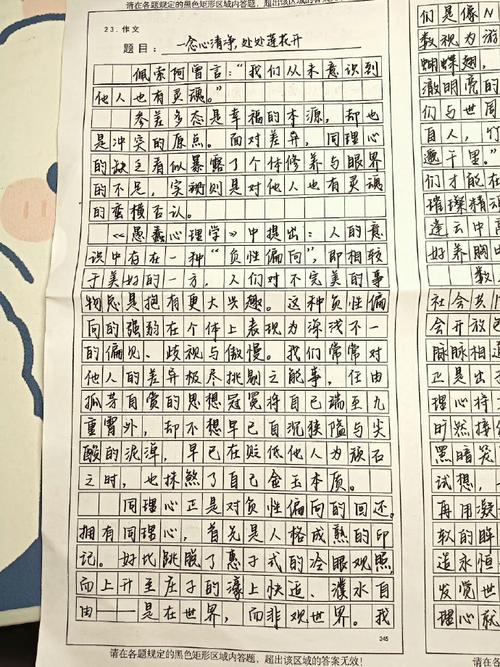 请在各题规定的黑色矩形区域内答题，超出该区的答案无效！
23.作文
题目：一念心清净，处处莲花开
佩索阿曾言：“我们从未意识到
他人也有灵魂。”
参差多态是幸福的本源，却也
是冲突的原点。面对差异，同理心
的缺乏看似暴露了个体修养与眼界
的不足，实则则是对他人也有灵魂
的蛮横否认。
《愚蠢心理学》中提出：人的意
识中存在一种“负性偏向”，即相较
于美好的一方，人们对不完美的事
物总是抱有更大兴趣。这种负性偏
向的强弱在个体上表现为深浅不一
的偏见、歧视与傲慢。我们常常对
他人的差异极尽挑剔之能事，任由
孤芳自赏的思想冠冕将自己端至九
重霄外，却不想早已自沉狭隘与尖
酸的泥淖，早已在贬低他人为顽石
之时，也抹煞了自己金玉本质。
同理心正是对负性偏向的回还。
拥有同理心，首先是人格成熟的印
记。好比跳脱了惠子式的冷眼观照，
而上升至庄子的濠上快适、濮水自
由——是在世界，而非观世界。我
245
请在各题规定的黑色矩形区域内答题，超出该区域的答案无效！
请在各题规定的黑色矩
们是像N
数视为游
蝴蝶翅，
澈明亮的
们与世周
自人，行
遍千里。
们才能在
璀璨精魂
逢云中高
好养胸中
数
社会共
会开放
脉脉相通
正是出于
理心将了
旷然接
黑暗笼
试想，
再用凝
软的眸
造永恒
发觉世
理心就
请在各题规定的黑